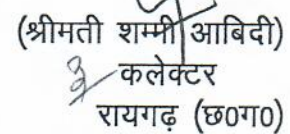 (श्रीमती शम्मी आबिदी)
कलेक्टर
रायगढ़ (छ0ग0)